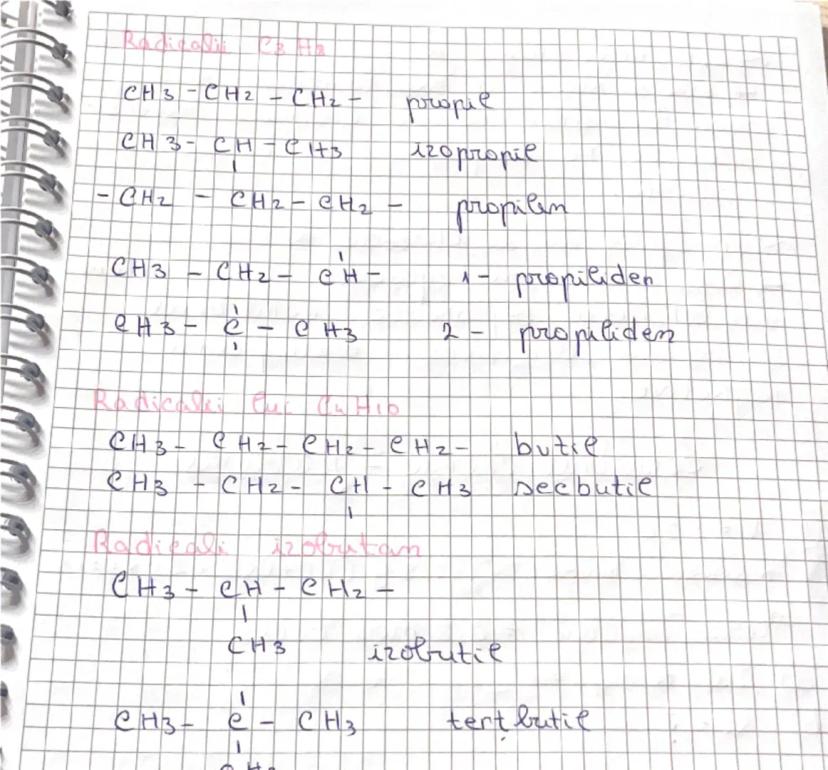 Radicalii C3H8
CH3 - CH2 - CH2 - propil
CH3 - CH - CH3 izopropil
- CH2 - CH2 - CH2 - propilen
CH3 - CH2 - CH - 1 - propiliden
CH3 - C - CH3 2 - propiliden
Radicalii lui C4H10
CH3 - CH2 - CH2 - CH2 - butil
CH3 - CH2 - CH - CH3 secbutil
Radicali izobutan
CH3 - CH - CH2 -
CH3 izobutil
CH3 - C - CH3 terțbutil